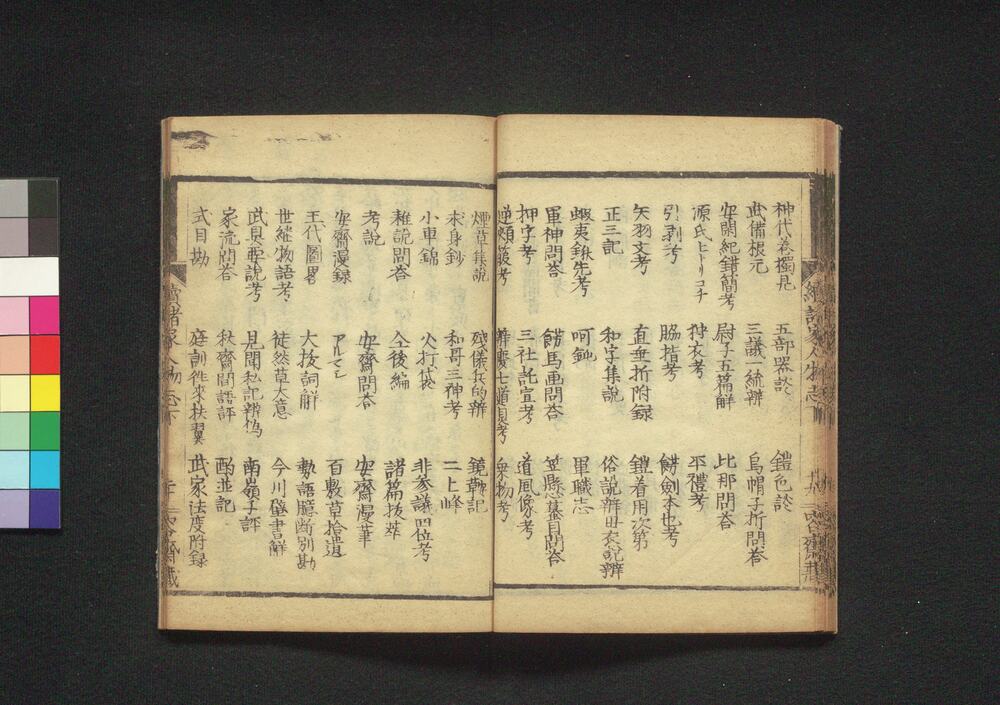 神代巻獨見 五部器談 鎧色談
武備根元 三議一統辨 烏帽子折問答
安閑紀錯簡考 尉子五篇解 比那問答
源氏ヒトリコチ 狩衣考 平禮考
引剥考 脇楷考 餝劍本也考
矢羽文考 直垂折附録 鎧着用次第
正三記 和字集說 俗說辨母衣說辨
蝦夷鍬先考 呵 軍職志
軍神問答 餝馬画問答 笠懸蟇目問答
押字考 三社託宣考 道風像考
逆頬箙考 七道具考 乗物考
煙草集說 殘儀兵的辨 鏡艸記
求身鈔 和哥三神考 二上峰
小車錦 火打袋 非参議四位考
雜說問答 仝後編 諸篇抜萃
考說 安齋問答 安齋漫筆
安齋漫録 アルマシ 百数草拾遺
王代圖畧 大抜詞解 勢語臆断別勘
世継物語考 徒然草大意 今川壁書解
武具要說考 見聞私記辨偽 南嶺子評
家流問答 秋齋間語評 酌並記
式目勘 庭訓徃來扶翼 武家法度附録
續諸家人物志下